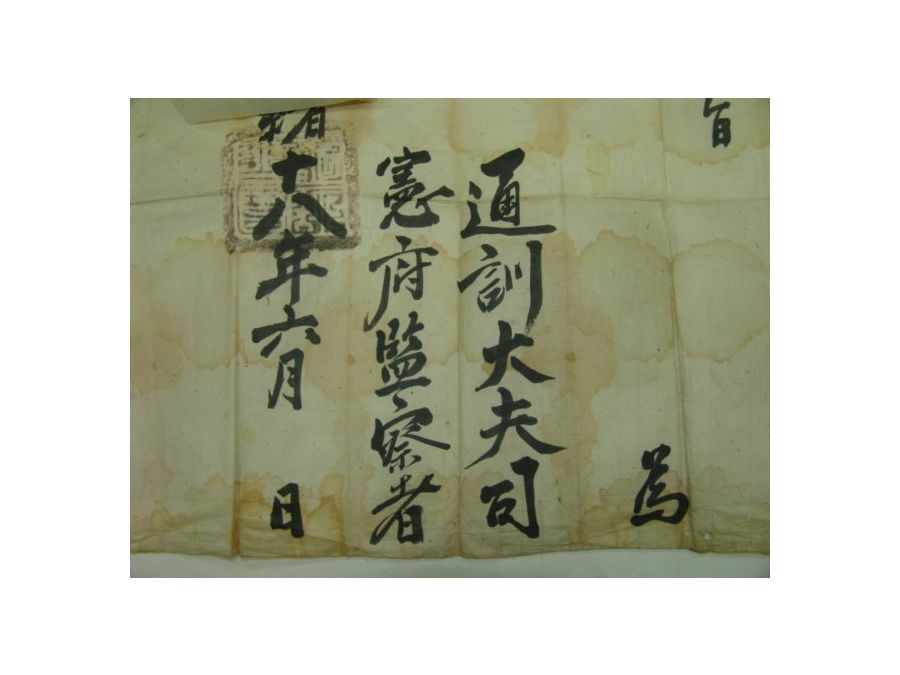 旨
爲
通訓大夫司
憲府監察者
緖十八年六月 日